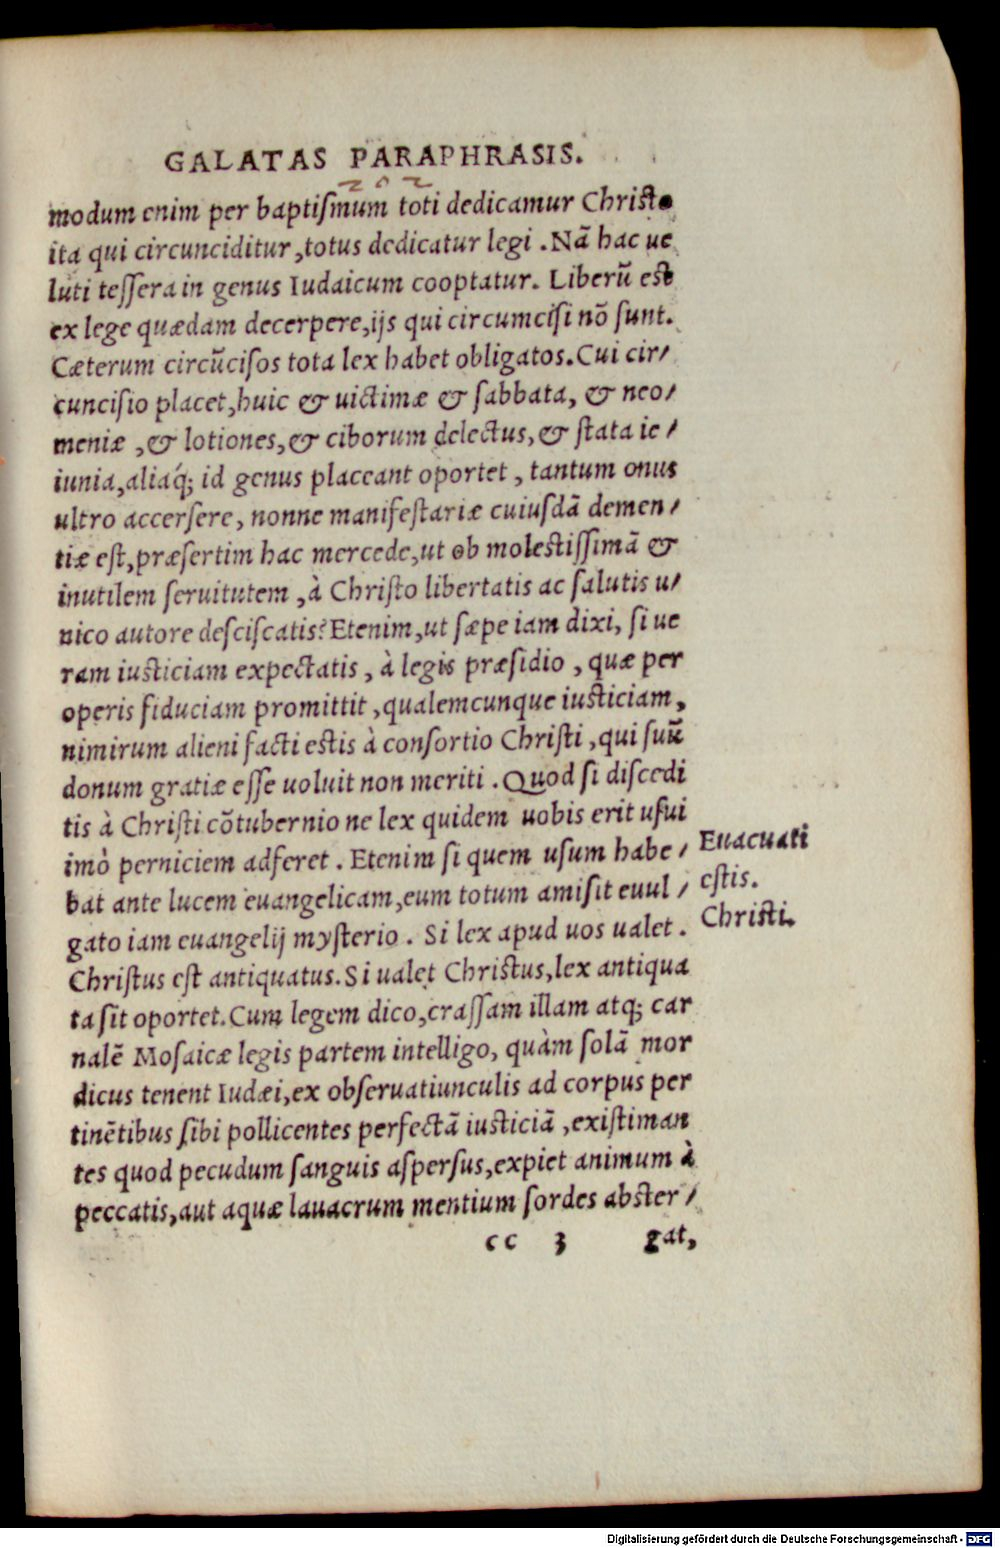 GALATAS PARAPHRASIS.
modum enim per baptiſmum toti dedicamur Chriſto
ita qui circunciditur, totus dedicatur legi. Nã hac ue
luti teſſera in genus Iudaicum cooptatur. Liberũ eſt
ex lege quædam decerpere, ijs qui circumciſi nõ ſunt.
Cæterum circũciſos tota lex habet obligatos. Cui cir/
cunciſio placet, huic & uictimæ & ſabbata, & neo/
meniæ, & lotiones, & ciborum delectus, & ſtata ie/
iunia, aliaq́; id genus placeant oportet, tantum onus
ultro accerſere, nonne manifeſtariæ cuiuſdã demen/
tiæ eſt, præſertim hac mercede, ut ob moleſtiſſimã &
inutilem ſeruitutem, à Chriſto libertatis ac ſalutis u/
nico autore deſciſcatis? Etenim, ut ſæpe iam dixi, ſi ue
ram iuſticiam expectatis, à legis præſidio, quæ per
operis fiduciam promittit, qualemcunque iuſticiam,
nimirum alieni facti eſtis à conſortio Chriſti, qui ſuũ
donum gratiæ eſſe uoluit non meriti. Quod ſi diſcedi
tis à Chriſti cõtubernio ne lex quidem uobis erit uſui
imò perniciem adferet. Etenim ſi quem uſum habe/
bat ante lucem euangelicam, eum totum amiſit euul/
gato iam euangelij myſterio. Si lex apud uos ualet.
Chriſtus eſt antiquatus. Si ualet Chriſtus, lex antiqua
ta ſit oportet. Cum legem dico, craſſam illam atq; car
nalẽ Moſaicæ legis partem intelligo, quàm ſolã mor
dicus tenent Iudæi, ex obſeruatiunculis ad corpus per
tinẽtibus ſibi pollicentes perfectã iuſticiã, exiſtiman
tes quod pecudum ſanguis aſperſus, expiet animum à
peccatis, aut aquæ lauacrum mentium ſordes abſter/
cc 3 gat,
Euacuati
eſtis.
Chriſti.
Digitalisierung gefördert durch die Deutsche Forschungsgemeinschaft - DFG